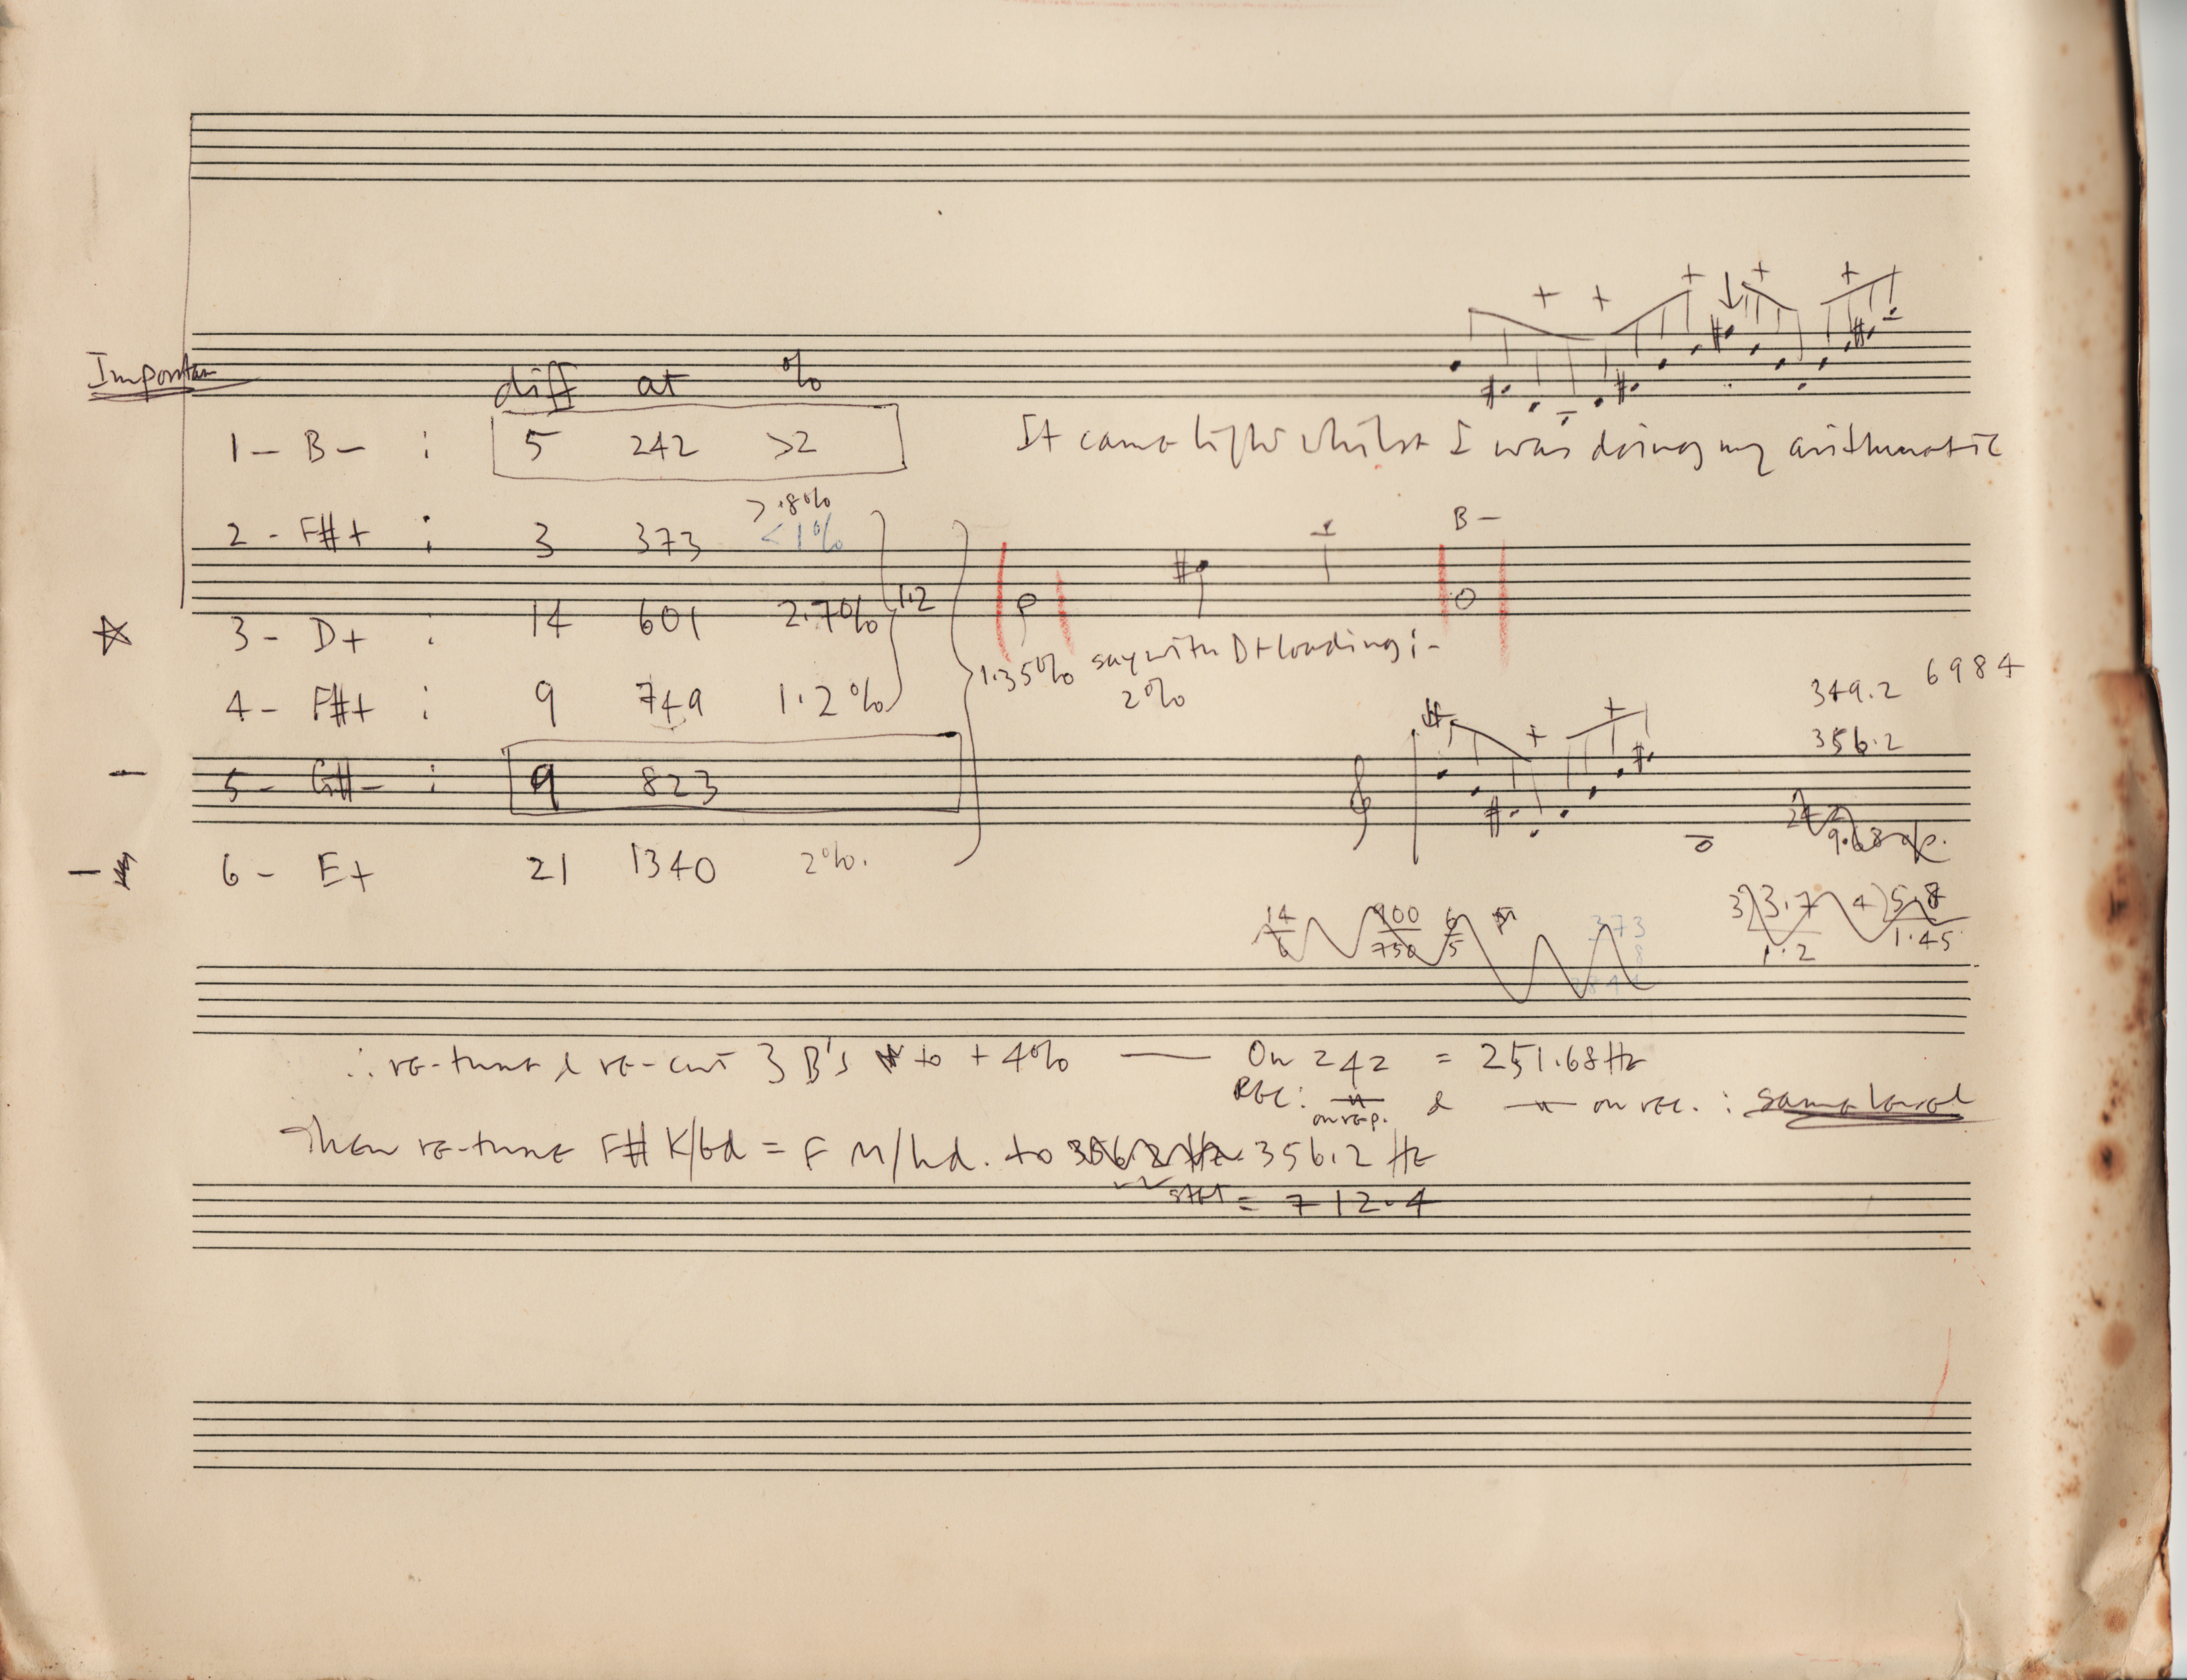 Importan
diff at %
1 - B - : 5 242 >2
It came light whilst I was doing my arithmatic
>.8%
2 - F#+ : 3 373 <1%
B -
3 - D+ : 14 601 2.7% 1.2
1.35% say with D+ loading :-
2%
4 - F#+ : 9 749 1.2%
349.2 6984
356.2
5 - G#- : 9 823
9.68
6 - E+ 21 1340 2%.
14/6 900/750 6/5 373 3)3.7 4)5.8
8 1.2 1.45
∴ re-tune & re-cut 3 B's to + 4% — On 242 = 251.68 Hz
REC: on rep. & on rec. : same level
Then re-tune F# K/bd = F M/hd. to 356.2 Hz
= 712.4